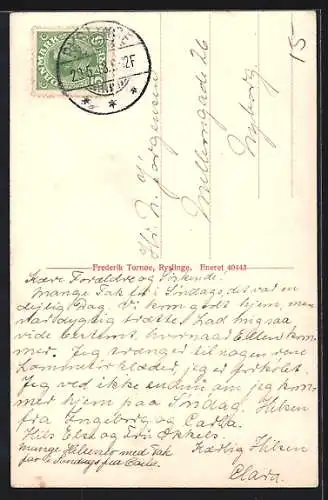 DANMARK
15
Hr. N. Jørgensen
Mellemgade 26
Nyborg.
Frederik Tornøe, Ryslinge. Eneret 40443
Kære Forældre og Søskende.
Mange Tak for i Søndags, det var en
dejlig Dag. Vi kom godt hjem, men
var dygtig trætte. Lad mig saa
vide bestemt, hvornaar Ellen kom-
mer. Jeg trænger til nogen rene
Lommetørklæder, jeg er forkølet.
Jeg ved ikke endnu om jeg kom-
mer hjem paa Søndag. Hilsen
fra Ingeborg og Carla.
Hils Else og Fru
Mange Hilsener med Tak
for i Søndags fra Carla.
Kærlig Hilsen
Clara.